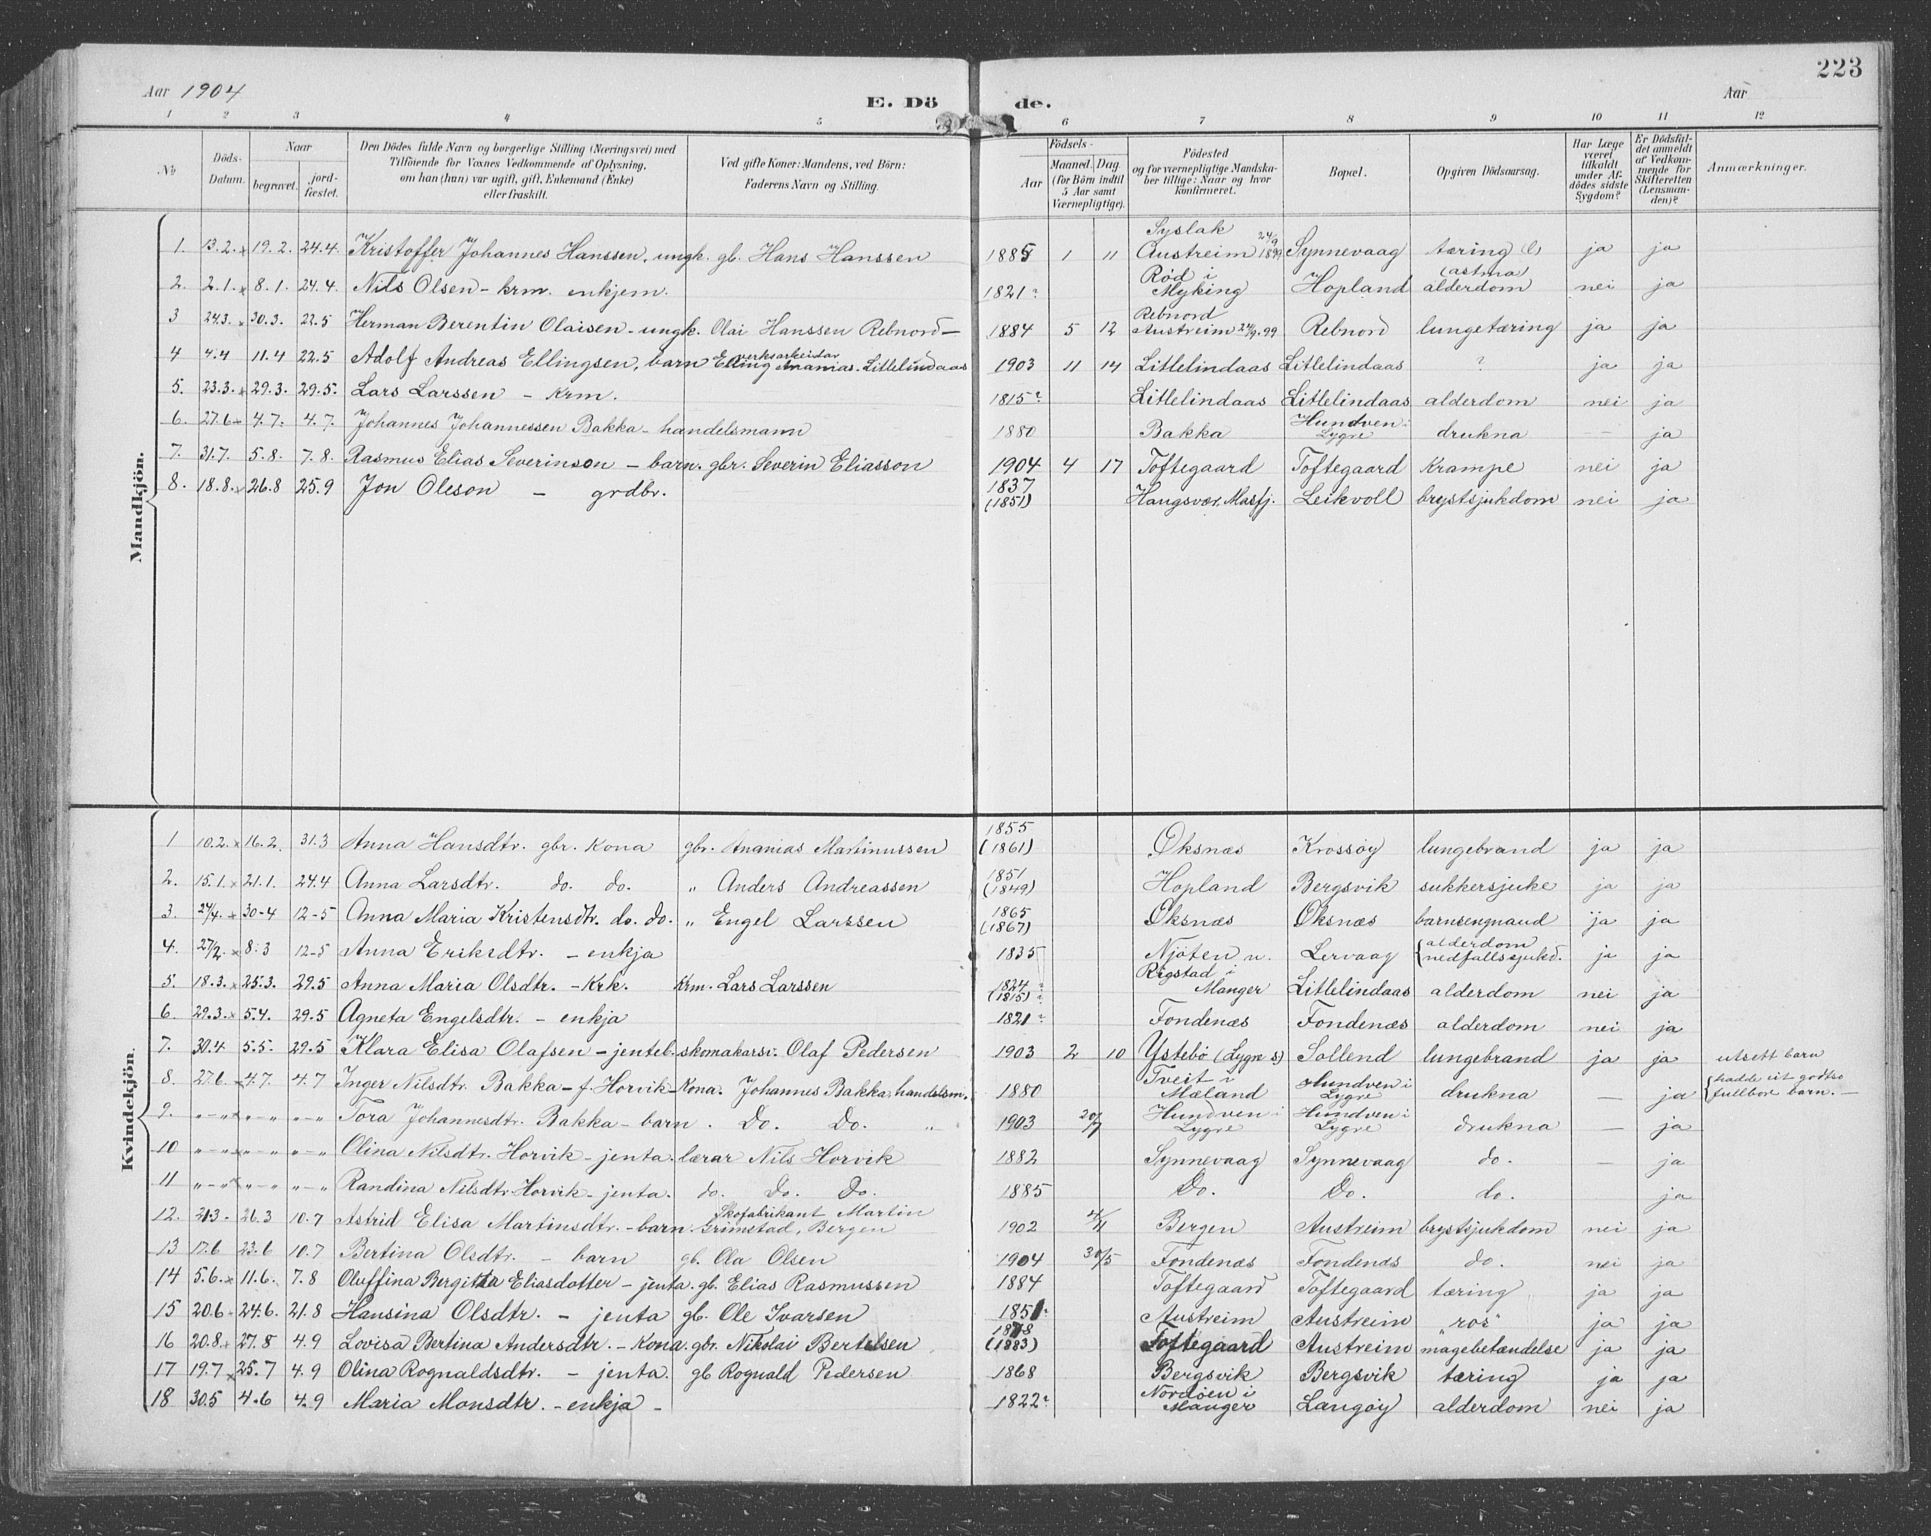 223
Aar 1904
E. Dö de.
Aar
1 2 3 4 5 6 7 8 9 10 11 12
No
Döds-Datum.
Naar
begravet.
jord-fæstet.
Den Dödes fulde Navn og borgerlige Stilling (Næringsvei) med
Tilföiende for Voxnes Vedkommende af Oplysning,
om han (hun) var ugift, gift, Enkemand (Enke)
eller fraskilt.
Ved gifte Koner: Mandens, ved Börn:
Faderens Navn og Stilling.
Födsels-
Aar
Maaned. Dag
(for Börn indtil
5 Aar samt
Værnepligtige).
Födested
og for værnepligtige Mandska-
ber tillige: Naar og hvor
konfirmeret.
Bopæl.
Opgiven Dödsaarsag.
Har Læge
været
tilkaldt
under Af-
dödes sidste
Sygdom?
Er Dödsfal-
det anmeldt
af Vedkom-
mende for
Skifteretten
(Lensman-
den)?
Anmærkninger.
Mandkjön.
1. 13.2. 19.2. 24.4. Kristoffer Johannes Hanssen, ungk. gb. Hans Hanssen 1885 1 11 Syslak Austreim 24/9 1899 Synnevaag tæring ja ja
2. 2.1. 8.1. 24.4. Nils Olsen - krm. enkjem. 1821? Röd i Myking Hopland (astma) alderdom nei ja
3 24.3. 30.3. 22.5 Herman Berentin Olaisen - ungk. Olai Hanssen Rebnord 1884 5 12 Rebnord Austreim 24/9.99 Rebnord lungetæring ja ja
4 4.4 11.4 22.5 Adolf Andreas Ellingsen, barn verksarbeidar Elling Ananias. Litlelindaas 1903 11 14 Litlelindaas Litlelindaas ? ja ja
5. 23.3. 29.3. 29.5. Lars Larssen - Krm. 1815? Litlelindaas Litlelindaas alderdom nei ja
6. 27.6 4.7. 4.7. Johannes Johannessen Bakka - handelsmann 1880 Bakka Hundven i Lygre drukna - ja
7. 31.7. 5.8. 7.8. Rasmus Elias Severinson - barn. gbr. Severin Eliasson 1904 4 17 Toftegaard Toftegaard Krampe nei ja
8. 18.8. 26.8 25.9 Jon Oleson - grdbr. 1837 (1851) Haugsvær, Masfj. Leikvoll brystsjukdom nei ja
Kvindekjön.
1 10.2. 16.2. 31.3 Anna Hansdtr. gbr. Kona gbr. Ananias Martinussen 1855 (1861) Öksnæs Krossöy lungebrand ja ja
2. 15.1. 21.1. 24.4 Anna Larsdtr. do. do. " Anders Andreassen 1851 (1849) Hopland Bergsvik sukkersjuke ja ja
3. 24/4. 30-4 12-5 Anna Maria Kristensdtr. do. do. " Engel Larssen 1865 (1867) Öksnæs Öksnæs barnsengnaud ja ja
4. 27/2. 8.3 12-5 Anna Eriksdtr. - enkja 1835 Njöten n. Lervaag alderdom nedfallssjukd. ja ja
5. 18.3. 25.3. 29.5 Anna Maria Olsdtr. - Krk. Krm. Lars Larssen 1824 ? (1815) ? Rigstad i Manger Litlelindaas alderdom nei ja
6 29.3. 5.4. 29.5 Agneta Engelsdtr. - enkja 1821? Fondenæs Fondenæs alderdom nei ja
7. 30.4 5.5. 29.5 Klara Elisa Olafsen - jenteb. skomakarsv. Olaf Pedersen 1903 2 10 Ystebö (Lygre s) Sollend lungebrand ja ja utsett barn
8. 27.6. 4.7. 4.7 Inger Nilsdtr. Bakka - f. Horvik - Kona. Johannes Bakka, handelsm. 1880 Tveit i Mæland Hundven i Lygre drukna - ja hadde eit godtso fullbore barn. -
9. " - " " - " " - " Tora Johannesdtr. Bakka - barn. Do. Do. " 1903 20/7 Hundven i Lygre Hundven i Lygre drukna - ja
10 " - " " - " " - " Olina Nilsdtr. Horvik - jenta. lærar Nils Horvik 1882 Synnevaag Synnevaag do. - ja
11 " - " " - " " - " Randina Nilsdtr. Horvik - jenta. do. Do. Do. 1885 Do. Do. do. ja
12. 20.3 26.3 10.7 Astrid Elisa Martinsdtr. - barn. Skofabrikant Martin Grimstad, Bergen 1902 4/11 Bergen Austreim brystsjukdom nei ja
13 17.6 23.6 10.7 Bertina Olsdtr. - barn gb. Ola Olsen 1904 30/5 Fondenæs Fondenæs do. nei ja
14 5.6. 11.6. 7.8 Oluffina Bergitta Eliasdotter - jenta. gb. Elias Rasmussen 1884 Toftegaard Toftegaard tæring ja ja
15 20.6 24.6. 21.8 Hansina Olsdtr. - jenta gb. Ole Ivarsen 1851. Austreim Austreim "ros" ja ja
16 20.8. 27.8 4.9 Lovisa Bertina Andersdtr. - Kona. gbr. Nikolai Bertelsen 1878 (1883) Toftegaard Austreim magebetændelse ja ja
17 19.7 25.7 4.9 Olina Rognaldsdtr. - jenta. gb Rognald Pedersen 1868 Bergsvik Bergsvik tæring ja ja
18 30.5 4.6 4.9 Maria Monsdtr. - enkja - 1822? Nordöen i Manger Langöy alderdom nei ja